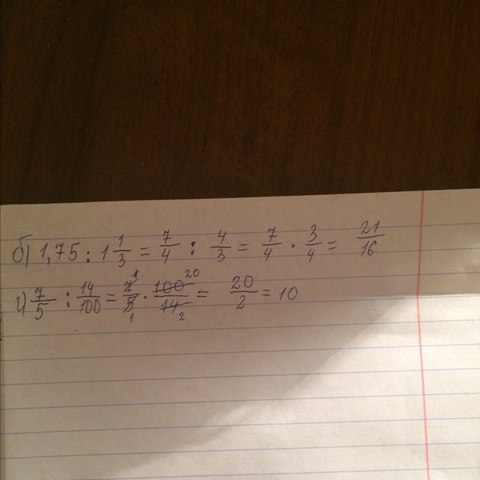 б) 1,75 : 1 1/3 = 7/4 : 4/3 = 7/4 · 3/4 = 21/16
г) 7/5 : 14/100 = 7/5 1 1 · 100/14 20 2 = 20/2 = 10